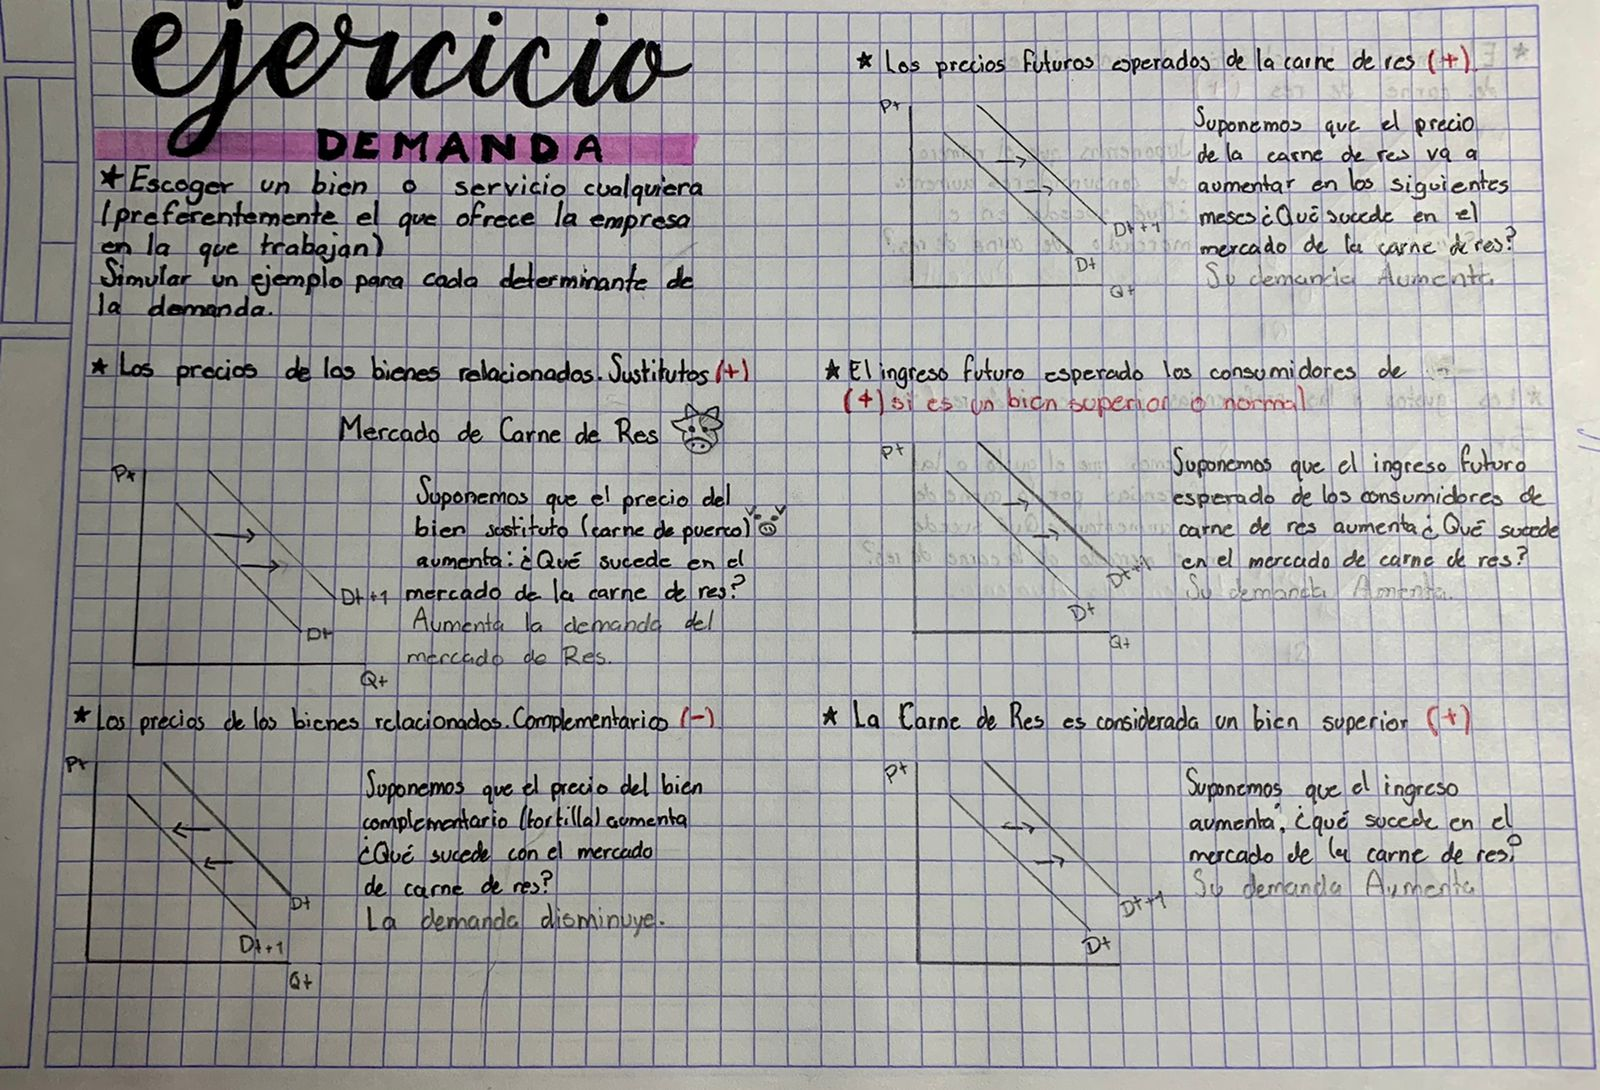 ejercicio
DEMANDA
★ Escoger un bien o servicio cualquiera
(preferentemente el que ofrece la empresa
en la que trabajan)
Simular un ejemplo para cada determinante de
la demanda.
★ Los precios de los bienes relacionados. Sustitutos (+)
Mercado de Carne de Res
Pt
Suponemos que el precio del
bien sostituto (carne de puerco)
aumenta: ¿Qué sucede en el
mercado de la carne de res?
Aumenta la demanda del
mercado de Res.
Dt+1
Dt
Qt
★ Los precios de los bienes relacionados. Complementarios (-)
Pt
Suponemos que el precio del bien
complementario (tortilla) aumenta
¿Qué sucede con el mercado
de carne de res?
La demanda disminuye.
Dt
Dt+1
Qt
★ Los precios futuros esperados de la carne de res (+)
Pt
Suponemos que el precio
de la carne de res va a
aumentar en los siguientes
meses ¿Qué sucede en el
mercado de la carne de res?
Su demanda Aumenta
Dt+1
Dt
Qt
★ El ingreso futuro esperado los consumidores de
(+) si es un bien superior o normal
Pt
Suponemos que el ingreso futuro
esperado de los consumidores de
carne de res aumenta ¿Qué sucede
en el mercado de carne de res?
Su demanda Amenta.
Dt+1
Dt
Qt
★ La Carne de Res es considerada un bien superior (+)
Pt
Suponemos que el ingreso
aumenta, ¿qué sucede en el
mercado de la carne de res?
Su demanda Aumenta
Dt+1
Dt